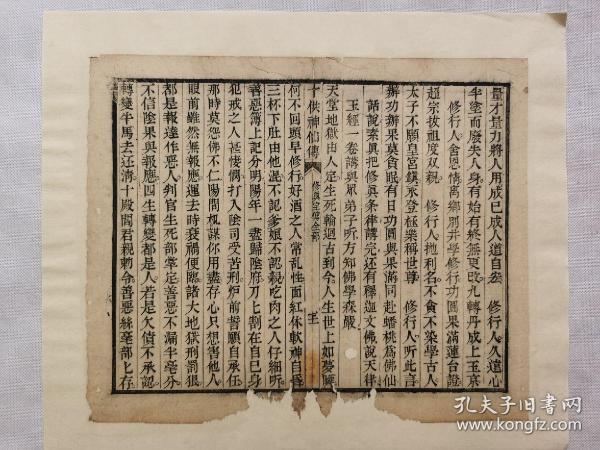 量才量力將人用成已成人道自去　修行人久遠心
半塗而廢失人身有始有終無更改九轉丹成上玉京
修行人舍恩情离鄉別井學修行功圓果滿蓮台證
超宗拔祖度双親　修行人拋利名不貪不染學古人
太子不願皇宮鎮永登極樂稱世尊　修行人听此言
辦功辦果莫貪眠有日功圓與果滿同赴蟠桃為佛仙
話說素真把修真条律講完还有釋迦文佛說天律
王經一卷講與眾弟子听方知佛學森嚴
天堂地獄由人定生死輪迴古到今人生世上如夢
十供神仙傳
修真宝傳全部
何不回頭早修行好酒之人常乱性面紅体軟神自昏
三杯下肚由他混不認爹娘不認親吃肉之人仔細听
善惡簿上記分明陽年一盡歸陰府刀匕割在自己身
犯戒之人甚悽惆打入陰司受苦刑炉前誓願自承任
那時莫怨佛不仁陽間机謀你用盡存心只想害他人
眼前雖然無報應運去時衰禍便臨諸大地獄刑罰狠
都是報達作惡人判官生死部掌定善惡不漏半毫分
不信陰果與報應四生轉變都是人若是欠債不承認
轉變牛馬去还清十殿閻君親勅令善惡絲毫部匕存
孔夫子旧書网
www.kongfz.com